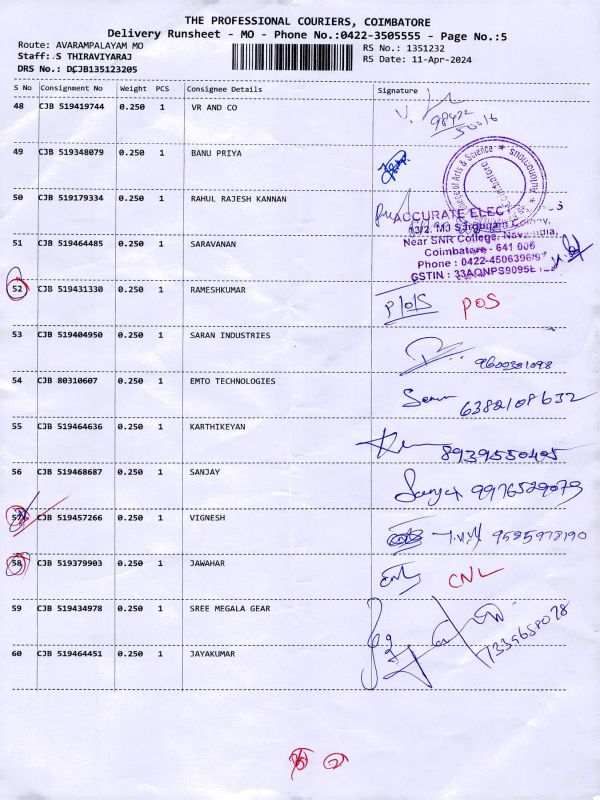 THE PROFESSIONAL COURIERS, COIMBATORE
Delivery Runsheet - MO - Phone No.:0422-3505555 - Page No.:5
Route: AVARAMPALAYAM MO
RS No.: 1351232
Staff: S THIRAVIYARAJ
RS Date: 11-Apr-2024
DRS No.: DCJB135123205
S No Consignment No Weight PCS Consignee Details Signature
48 CJB 519419744 0.250 1 VR AND CO
49 CJB 519348079 0.250 1 BANU PRIYA
50 CJB 519179334 0.250 1 RAHUL RAJESH KANNAN
ACCURATE ELECT
13/2, MJ Sargunam Colony,
Near SNR College, Nava India,
51 CJB 519464485 0.250 1 SARAVANAN
Coimbatore - 641 006
Phone : 0422-4506396/97
GSTIN : 33AQNPS9095E
52 CJB 519431330 0.250 1 RAMESHKUMAR POS
53 CJB 519404950 0.250 1 SARAN INDUSTRIES 9600381098
54 CJB 80310607 0.250 1 EMTO TECHNOLOGIES 6382108632
55 CJB 519464636 0.250 1 KARTHIKEYAN 8939550405
56 CJB 519468687 0.250 1 SANJAY Sanjay 9976529079
57 CJB 519457266 0.250 1 VIGNESH 9595978190
58 CJB 519379903 0.250 1 JAWAHAR CNL CNL
59 CJB 519434978 0.250 1 SREE MEGALA GEAR
60 CJB 519464451 0.250 1 JAYAKUMAR 7339658078